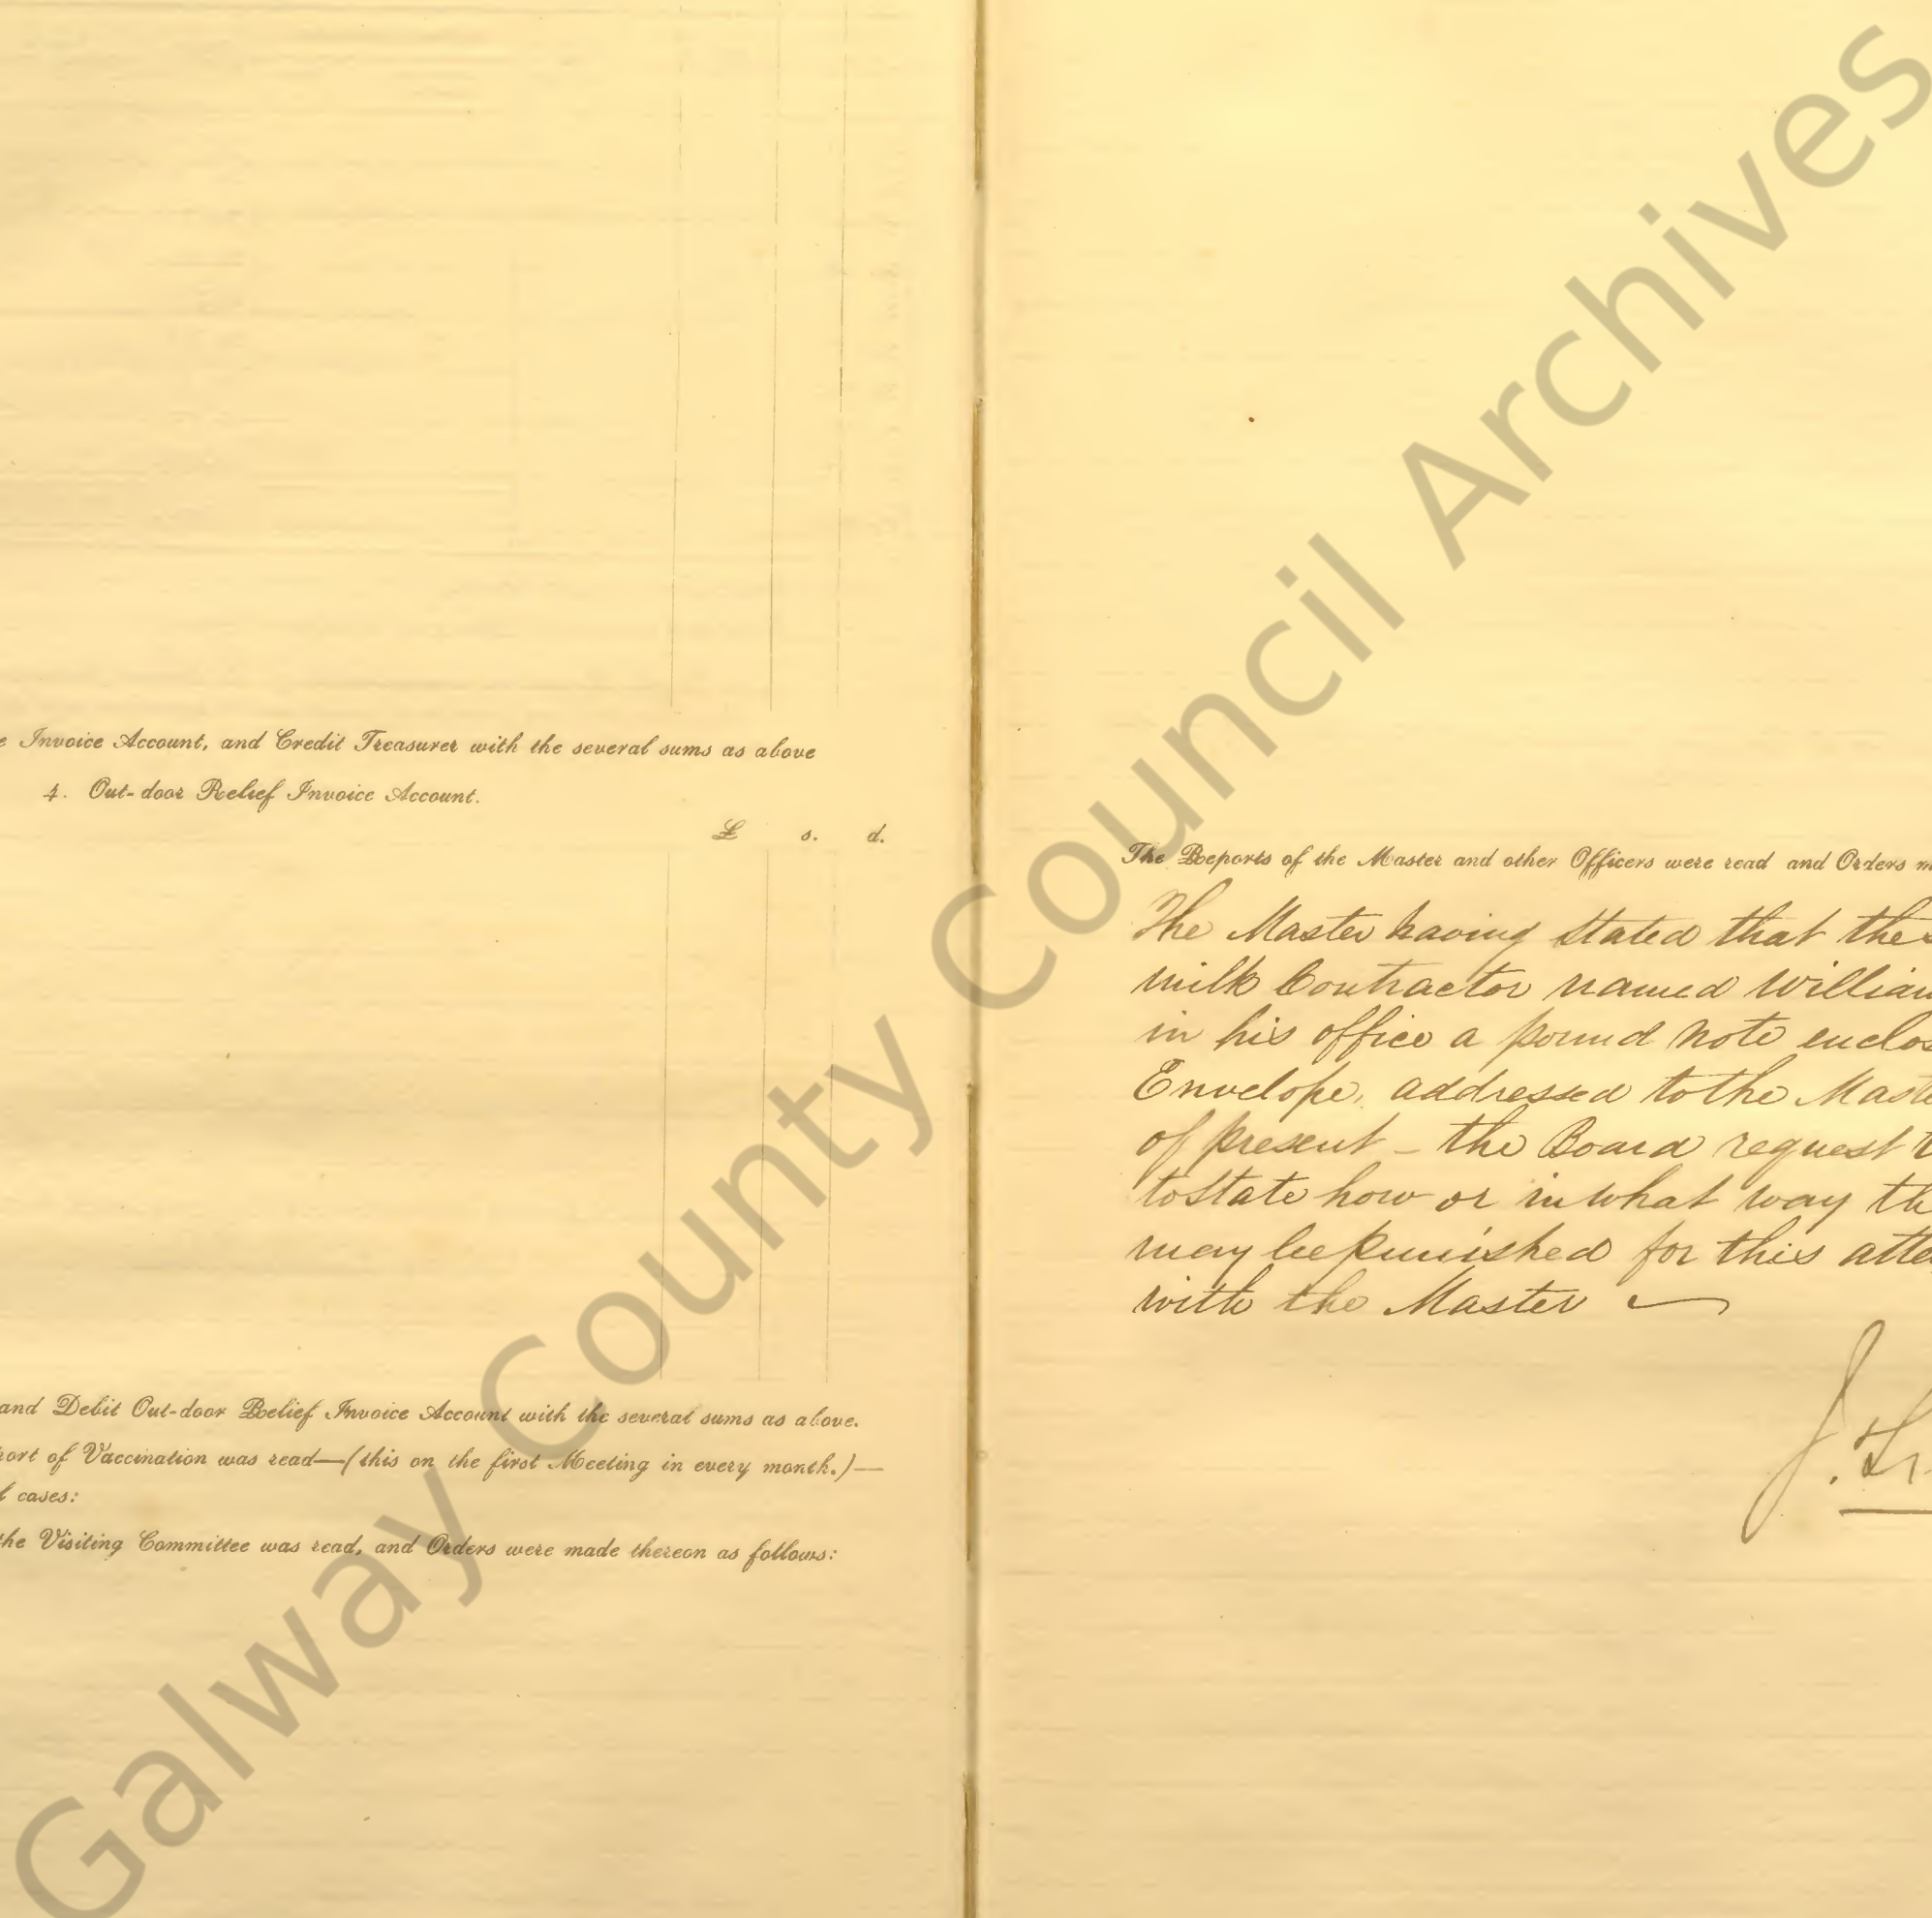 e Invoice Account, and Credit Treasurer with the several sums as above
4. Out-door Relief Invoice Account.
£ s. d.
and Debit Out-door Relief Invoice Account with the several sums as above.
ort of Vaccination was read—(this on the first Meeting in every month.)—
l cases:
the Visiting Committee was read, and Orders were made thereon as follows:
The Reports of the Master and other Officers were read and Orders m
The Master having stated that the
milk Contractor named William
in his office a pound note enclos
Envelope, addressed to the Maste
of present - the Board request t
to state how or in what way th
may be punished for this atte
with the Master
Galway County Council Archives